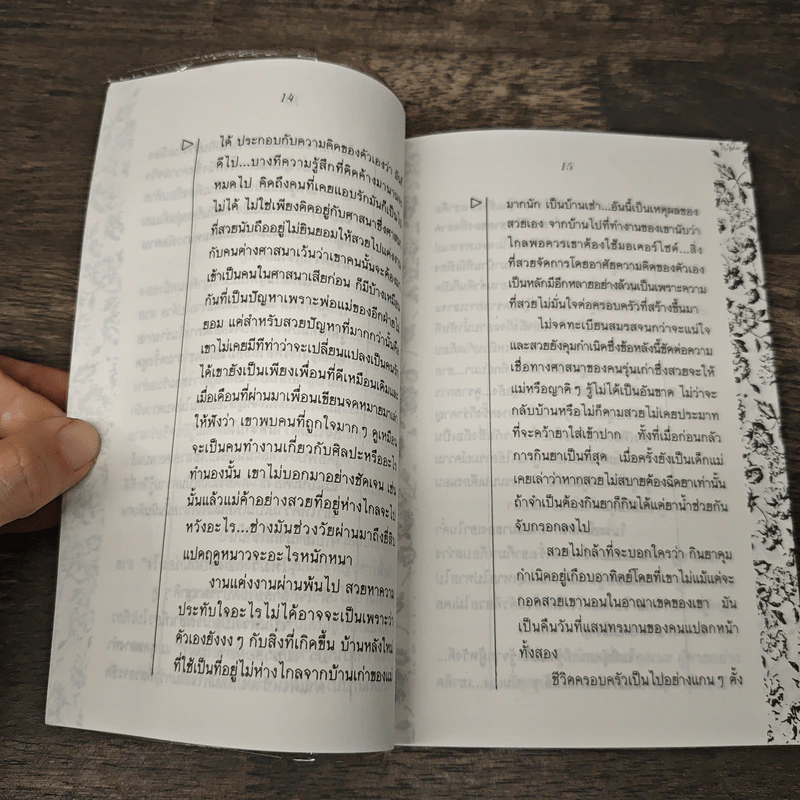 14
ได้ ประกอบกับความคิดของตัวเองว่า
ดีไป...บางทีความรู้สึกที่ติดค้างมานาน
หมดไป คิดถึงคนที่เคยแอบรักมันก็เป็น
ไม่ได้ ไม่ใช่เพียงติดอยู่กับศาสนาซึ่งศาสนา
ที่สวยนับถืออยู่ไม่ยินยอมให้สวยไปแต่งงาน
กับคนต่างศาสนาเว้นว่าเขาคนนั้นจะต้อง
เข้าเป็นคนในศาสนาเสียก่อน ก็มีบ้างเหมือน
กันที่เป็นปัญหาเพราะพ่อแม่ของอีกฝ่ายไม่
ยอม แต่สำหรับสวยปัญหาที่มากกว่านั้นคือ
เขาไม่เคยมีทีท่าว่าจะเปลี่ยนแปลงเป็นคนรัก
ได้เขายังเป็นเพียงเพื่อนที่ดีเหมือนเดิมและ
เมื่อเดือนที่ผ่านมาเพื่อนเขียนจดหมายมาเล่า
ให้ฟังว่า เขาพบคนที่ถูกใจมากๆ ดูเหมือน
จะเป็นคนทำงานเกี่ยวกับศิลปะหรืออะไร
ทำนองนั้น เขาไม่บอกมาอย่างชัดเจน เช่น
นั้นแล้วแม่ค้าอย่างสวยที่อยู่ห่างไกลจะไป
หวังอะไร...ช่างมันช่วงวัยผ่านมาถึงยี่สิบ
แปดฤดูหนาวจะอะไรหนักหนา
งานแต่งงานผ่านพ้นไป สวยหาความ
ประทับใจอะไรไม่ได้อาจจะเป็นเพราะว่า
ตัวเองยังงงๆ กับสิ่งที่เกิดขึ้น บ้านหลังใหม่
ที่ใช้เป็นที่อยู่ไม่ห่างไกลจากบ้านเก่าของแม่
15
มากนัก เป็นบ้านเช่า...อันนี้เป็นเหตุผลของ
สวยเอง จากบ้านไปที่ทำงานของเขานับว่า
ไกลพอควรเขาต้องใช้มอเตอร์ไซด์...สิ่ง
ที่สวยจัดการโดยอาศัยความคิดของตัวเอง
เป็นหลักมีอีกหลายอย่างล้วนเป็นเพราะความ
ที่สวยไม่มั่นใจต่อครอบครัวที่สร้างขึ้นมา
ไม่จดทะเบียนสมรสจนกว่าจะแน่ใจ
และสวยยังคุมกำเนิดซึ่งข้อหลังนี้ขัดต่อความ
เชื่อทางศาสนาของคนรุ่นเก่าซึ่งสวยจะให้
แม่หรือญาติๆ รู้ไม่ได้เป็นอันขาด ไม่ว่าจะ
กลับบ้านหรือไม่ก็ตามสวยไม่เคยประมาท
ที่จะคว้ายาใส่เข้าปาก ทั้งที่เมื่อก่อนกลัว
การกินยาเป็นที่สุด เมื่อครั้งยังเป็นเด็กแม่
เคยเล่าว่าหากสวยไม่สบายต้องฉีดยาเท่านั้น
ถ้าจำเป็นต้องกินยาก็กินได้แต่ยาน้ำช่วยกัน
จับกรอกลงไป
สวยไม่กล้าที่จะบอกใครว่า กินยาคุม
กำเนิดอยู่เกือบอาทิตย์โดยที่เขาไม่แม้แต่จะ
กอดสวยเขานอนในอาณาเขตของเขา มัน
เป็นคืนวันที่แสนทรมานของคนแปลกหน้า
ทั้งสอง
ชีวิตครอบครัวเป็นไปอย่างแกนๆ ตั้ง